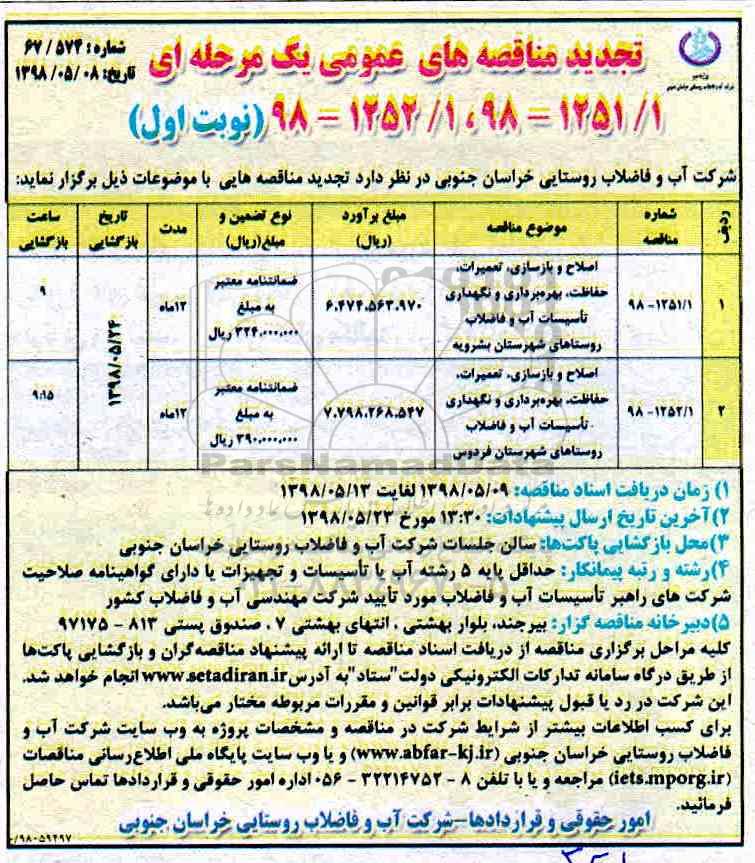 شماره: ۶۷/۵۷۴
تاریخ: ۱۳۹۸/۰۵/۰۸
تجدید مناقصه های عمومی یک مرحله ای
۹۸ – ۱۲۵۱/۱ ، ۹۸ – ۱۲۵۲/۱ (نوبت اول)
شرکت آب و فاضلاب روستایی خراسان جنوبی در نظر دارد تجدید مناقصه هایی با موضوعات ذیل برگزار نماید:
ردیف
شماره مناقصه
موضوع مناقصه
مبلغ برآورد (ریال)
نوع تضمین و مبلغ(ریال)
مدت
تاریخ بازگشایی
ساعت بازگشایی
۱
۹۸ -۱۲۵۱/۱
اصلاح و بازسازی، تعمیرات،
حفاظت، بهره‌برداری و نگهداری
تأسیسات آب و فاضلاب
روستاهای شهرستان بشرویه
۶.۴۷۴.۵۶۳.۹۷۰
ضمانتنامه معتبر
به مبلغ
۳۲۴.۰۰۰.۰۰۰ ریال
۱۲ماه
۱۳۹۸/۰۵/۲۴
۹
۲
۹۸ -۱۲۵۲/۱
اصلاح و بازسازی، تعمیرات،
حفاظت، بهره‌برداری و نگهداری
تأسیسات آب و فاضلاب
روستاهای شهرستان فردوس
۷.۷۹۸.۲۶۸.۵۴۷
ضمانتنامه معتبر
به مبلغ
۳۹۰.۰۰۰.۰۰۰ ریال
۱۲ماه
۹:۱۵
ParsNamadData
۱) زمان دریافت اسناد مناقصه: ۱۳۹۸/۰۵/۰۹ لغایت ۱۳۹۸/۰۵/۱۳
۲)آخرین تاریخ ارسال پیشنهادات: ۱۳:۳۰ مورخ ۱۳۹۸/۰۵/۲۳
۳)محل بازگشایی پاکت‌ها: سالن جلسات شرکت آب و فاضلاب روستایی خراسان جنوبی
۴)رشته و رتبه پیمانکار: حداقل پایه ۵ رشته آب یا تأسیسات و تجهیزات یا دارای گواهینامه صلاحیت
شرکت های راهبر تأسیسات آب و فاضلاب مورد تأیید شرکت مهندسی آب و فاضلاب کشور
۵)دبیرخانه مناقصه گزار: بیرجند، بلوار بهشتی ، انتهای بهشتی ۷ ، صندوق پستی ۸۱۳ – ۹۷۱۷۵
کلیه مراحل برگزاری مناقصه از دریافت اسناد مناقصه تا ارائه پیشنهاد مناقصه‌گران و بازگشایی پاکت‌ها
از طریق درگاه سامانه تدارکات الکترونیکی دولت"ستاد"به آدرس www.setadiran.ir انجام خواهد شد.
این شرکت در رد یا قبول پیشنهادات برابر قوانین و مقررات مربوطه مختار می‌باشد.
برای کسب اطلاعات بیشتر از شرایط شرکت در مناقصه و مشخصات پروژه به وب سایت شرکت آب و
فاضلاب روستایی خراسان جنوبی (www.abfar-kj.ir) و یا وب سایت پایگاه ملی اطلاع‌رسانی مناقصات
(iets.mporg.ir) مراجعه و یا با تلفن ۸ – ۳۲۲۱۴۷۵۲ – ۰۵۶ اداره امور حقوقی و قراردادها تماس حاصل
فرمائید.
امور حقوقی و قراردادها–شرکت آب و فاضلاب روستایی خراسان جنوبی
۹۸۰۵۹۲۹۷/